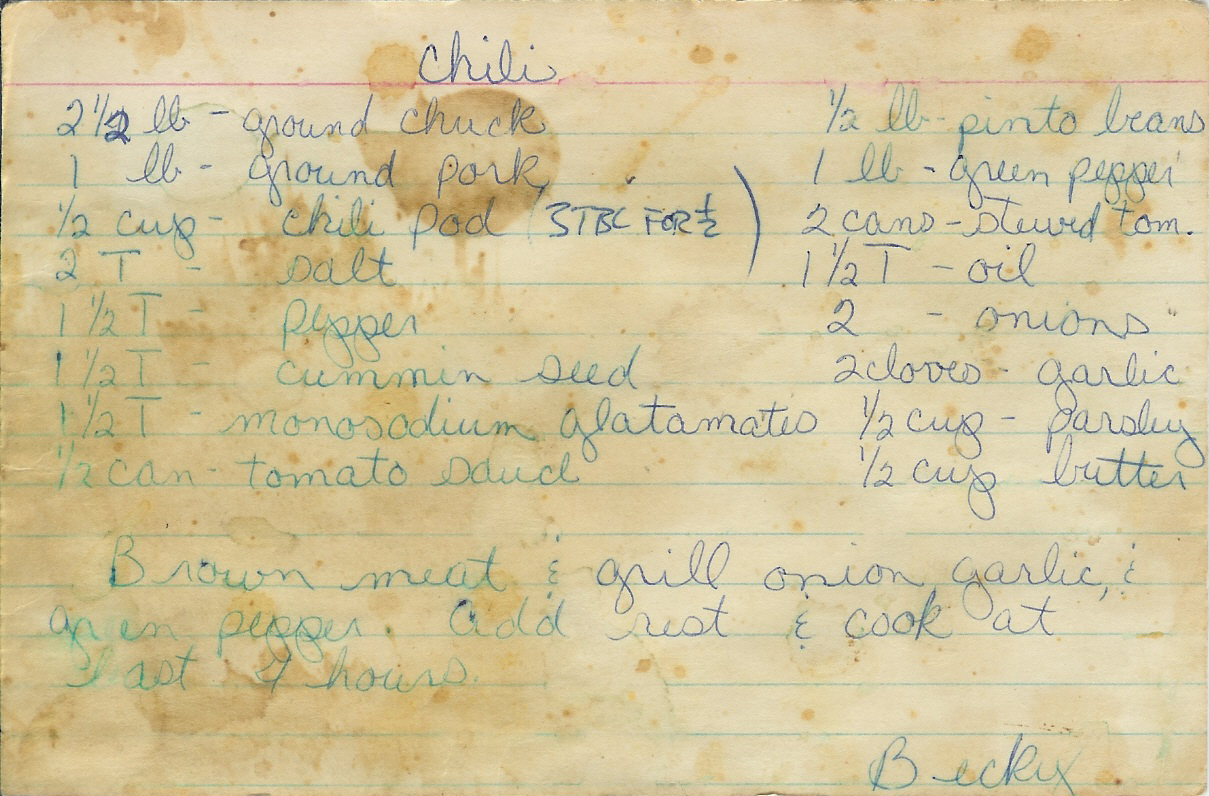 Chili
2 1/2 lb - ground chuck
1 lb - ground pork
1/2 cup - chili pod (3 TBL FOR 1/2)
2 T - salt
1 1/2 T - pepper
1 1/2 T - cummin seed
1 1/2 T - monosodium glatamates
1/2 can - tomato sauce
1/2 lb - pinto beans
1 lb - green pepper
2 cans - stewed tom.
1 1/2 T - oil
2 - onions
2 cloves - garlic
1/2 cup - parsley
1/2 cup butter
Brown meat & grill onion, garlic, &
green pepper. Add rest & cook at
least 4 hours.
Becky